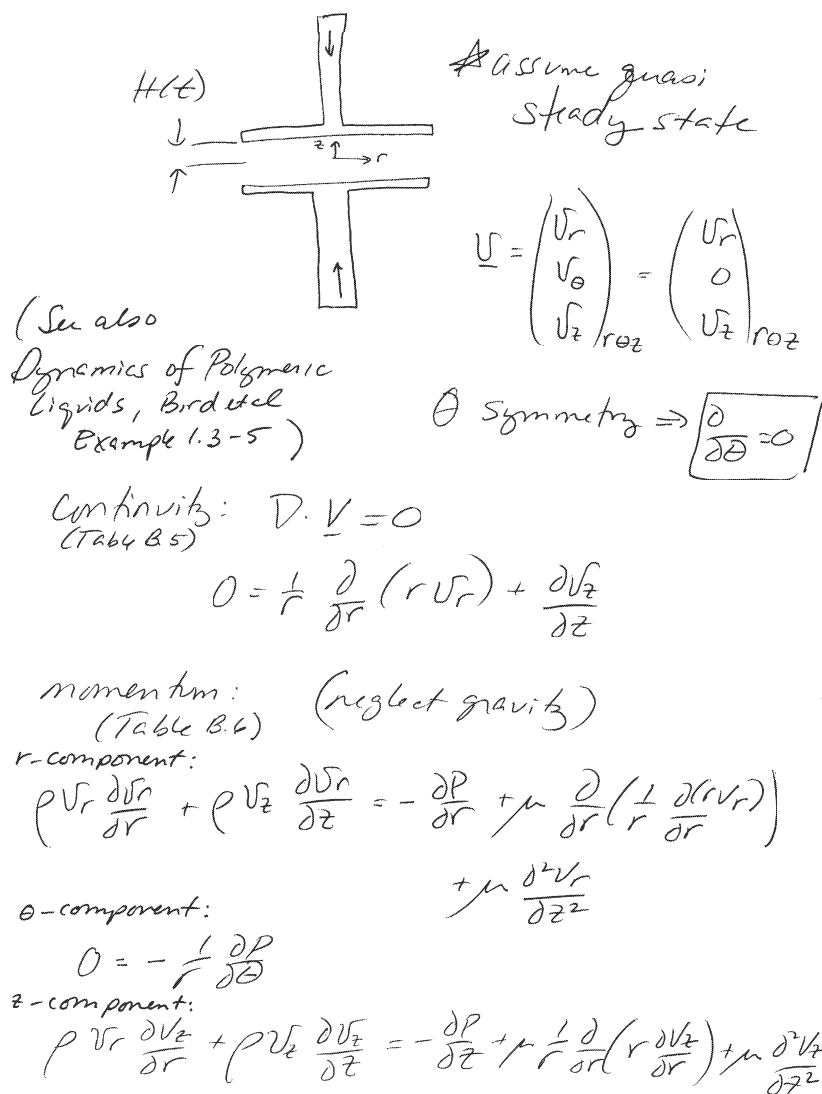 H(t)
*assume quasi
steady state
z
r
v = (v_r v_θ v_z)_rθz = (v_r 0 v_z)_rθz
(See also
Dynamics of Polymeric
Liquids, Bird et al
Example 1.3-5)
θ symmetry ⇒ ∂/∂θ = 0
Continuity: ∇·v = 0
(Table B.5)
0 = 1/r ∂/∂r (r v_r) + ∂v_z/∂z
momentum: (neglect gravity)
(Table B.6)
r-component:
ρ v_r ∂v_r/∂r + ρ v_z ∂v_r/∂z = - ∂P/∂r + μ ∂/∂r (1/r ∂(r v_r)/∂r)
+ μ ∂²v_r/∂z²
θ-component:
0 = - 1/r ∂P/∂θ
z-component:
ρ v_r ∂v_z/∂r + ρ v_z ∂v_z/∂z = - ∂P/∂z + μ 1/r ∂/∂r (r ∂v_z/∂r) + μ ∂²v_z/∂z²